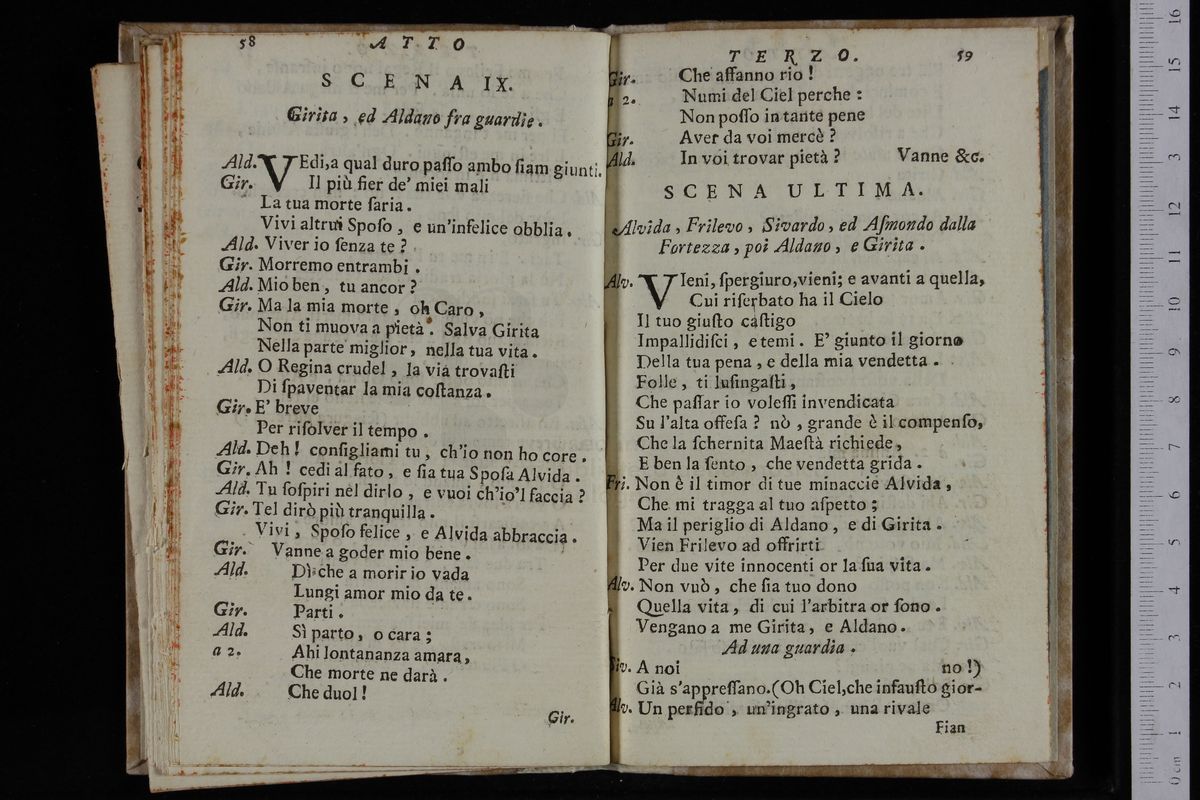 58 ATTO
SCENA IX.
Girita, ed Aldano fra guardie.
Ald. VEdi, a qual duro paſſo ambo ſiam giunti.
Gir. Il più fier de' miei mali
La tua morte ſaria.
Vivi altrui Spoſo, e un'infelice obblia.
Ald. Viver io ſenza te?
Gir. Morremo entrambi.
Ald. Mio ben, tu ancor?
Gir. Ma la mia morte, oh Caro,
Non ti muova a pietà. Salva Girita
Nella parte miglior, nella tua vita.
Ald. O Regina crudel, la via trovaſti
Di ſpaventar la mia coſtanza.
Gir. E' breve
Per riſolver il tempo.
Ald. Deh! conſigliami tu, ch'io non ho core.
Gir. Ah! cedi al fato, e ſia tua Spoſa Alvida.
Ald. Tu ſoſpiri nel dirlo, e vuoi ch'io'l faccia?
Gir. Tel dirò più tranquilla.
Vivi, Spoſo felice, e Alvida abbraccia.
Gir. Vanne a goder mio bene.
Ald. Dì che a morir io vada
Lungi amor mio da te.
Gir. Parti.
Ald. Sì parto, o cara;
a 2. Ahi lontananza amara,
Che morte ne darà.
Ald. Che duol!
Gir.
TERZO. 59
Gir. Che affanno rio!
a 2. Numi del Ciel perche:
Non poſſo in tante pene
Gir. Aver da voi mercè?
Ald. In voi trovar pietà? Vanne &c.
SCENA ULTIMA.
Alvida, Frilevo, Sivardo, ed Aſmondo dalla
Fortezza, poi Aldano, e Girita.
Alv. VIeni, ſpergiuro, vieni; e avanti a quella,
Cui riſerbato ha il Cielo
Il tuo giuſto caſtigo
Impallidiſci, e temi. E' giunto il giorno
Della tua pena, e della mia vendetta.
Folle, ti luſingaſti,
Che paſſar io voleſſi invendicata
Su l'alta offeſa? nò, grande è il compenſo,
Che la ſchernita Maeſtà richiede,
E ben la ſento, che vendetta grida.
Fri. Non è il timor di tue minaccie Alvida,
Che mi tragga al tuo aſpetto;
Ma il periglio di Aldano, e di Girita.
Vien Frilevo ad offrirti
Per due vite innocenti or la ſua vita.
Alv. Non vuò, che ſia tuo dono
Quella vita, di cui l'arbitra or ſono.
Vengano a me Girita, e Aldano.
Ad una guardia.
Siv. A noi no!)
Già s'appreſſano. (Oh Ciel, che infauſto gior-
Alv. Un perfido, un'ingrato, una rivale
Fian